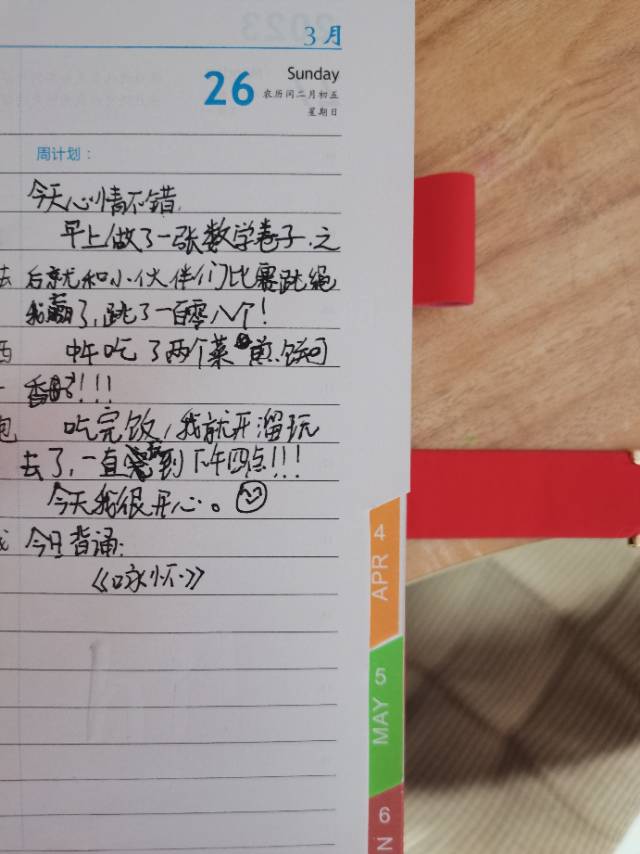 3月
26
Sunday
农历闰二月初五
星期日
周计划：
今天心情不错,
早上做了一张数学卷子,之
后就和小伙伴们比赛跳绳
我赢了,跳了一百零八个!
中午吃了两个菜煎饼可
香了!!!
吃完饭,我就开溜玩
去了,一直玩到下午四点!!!
今天我很开心。
今日背诵:
《咏怀》
4
APR
5
MAY
6